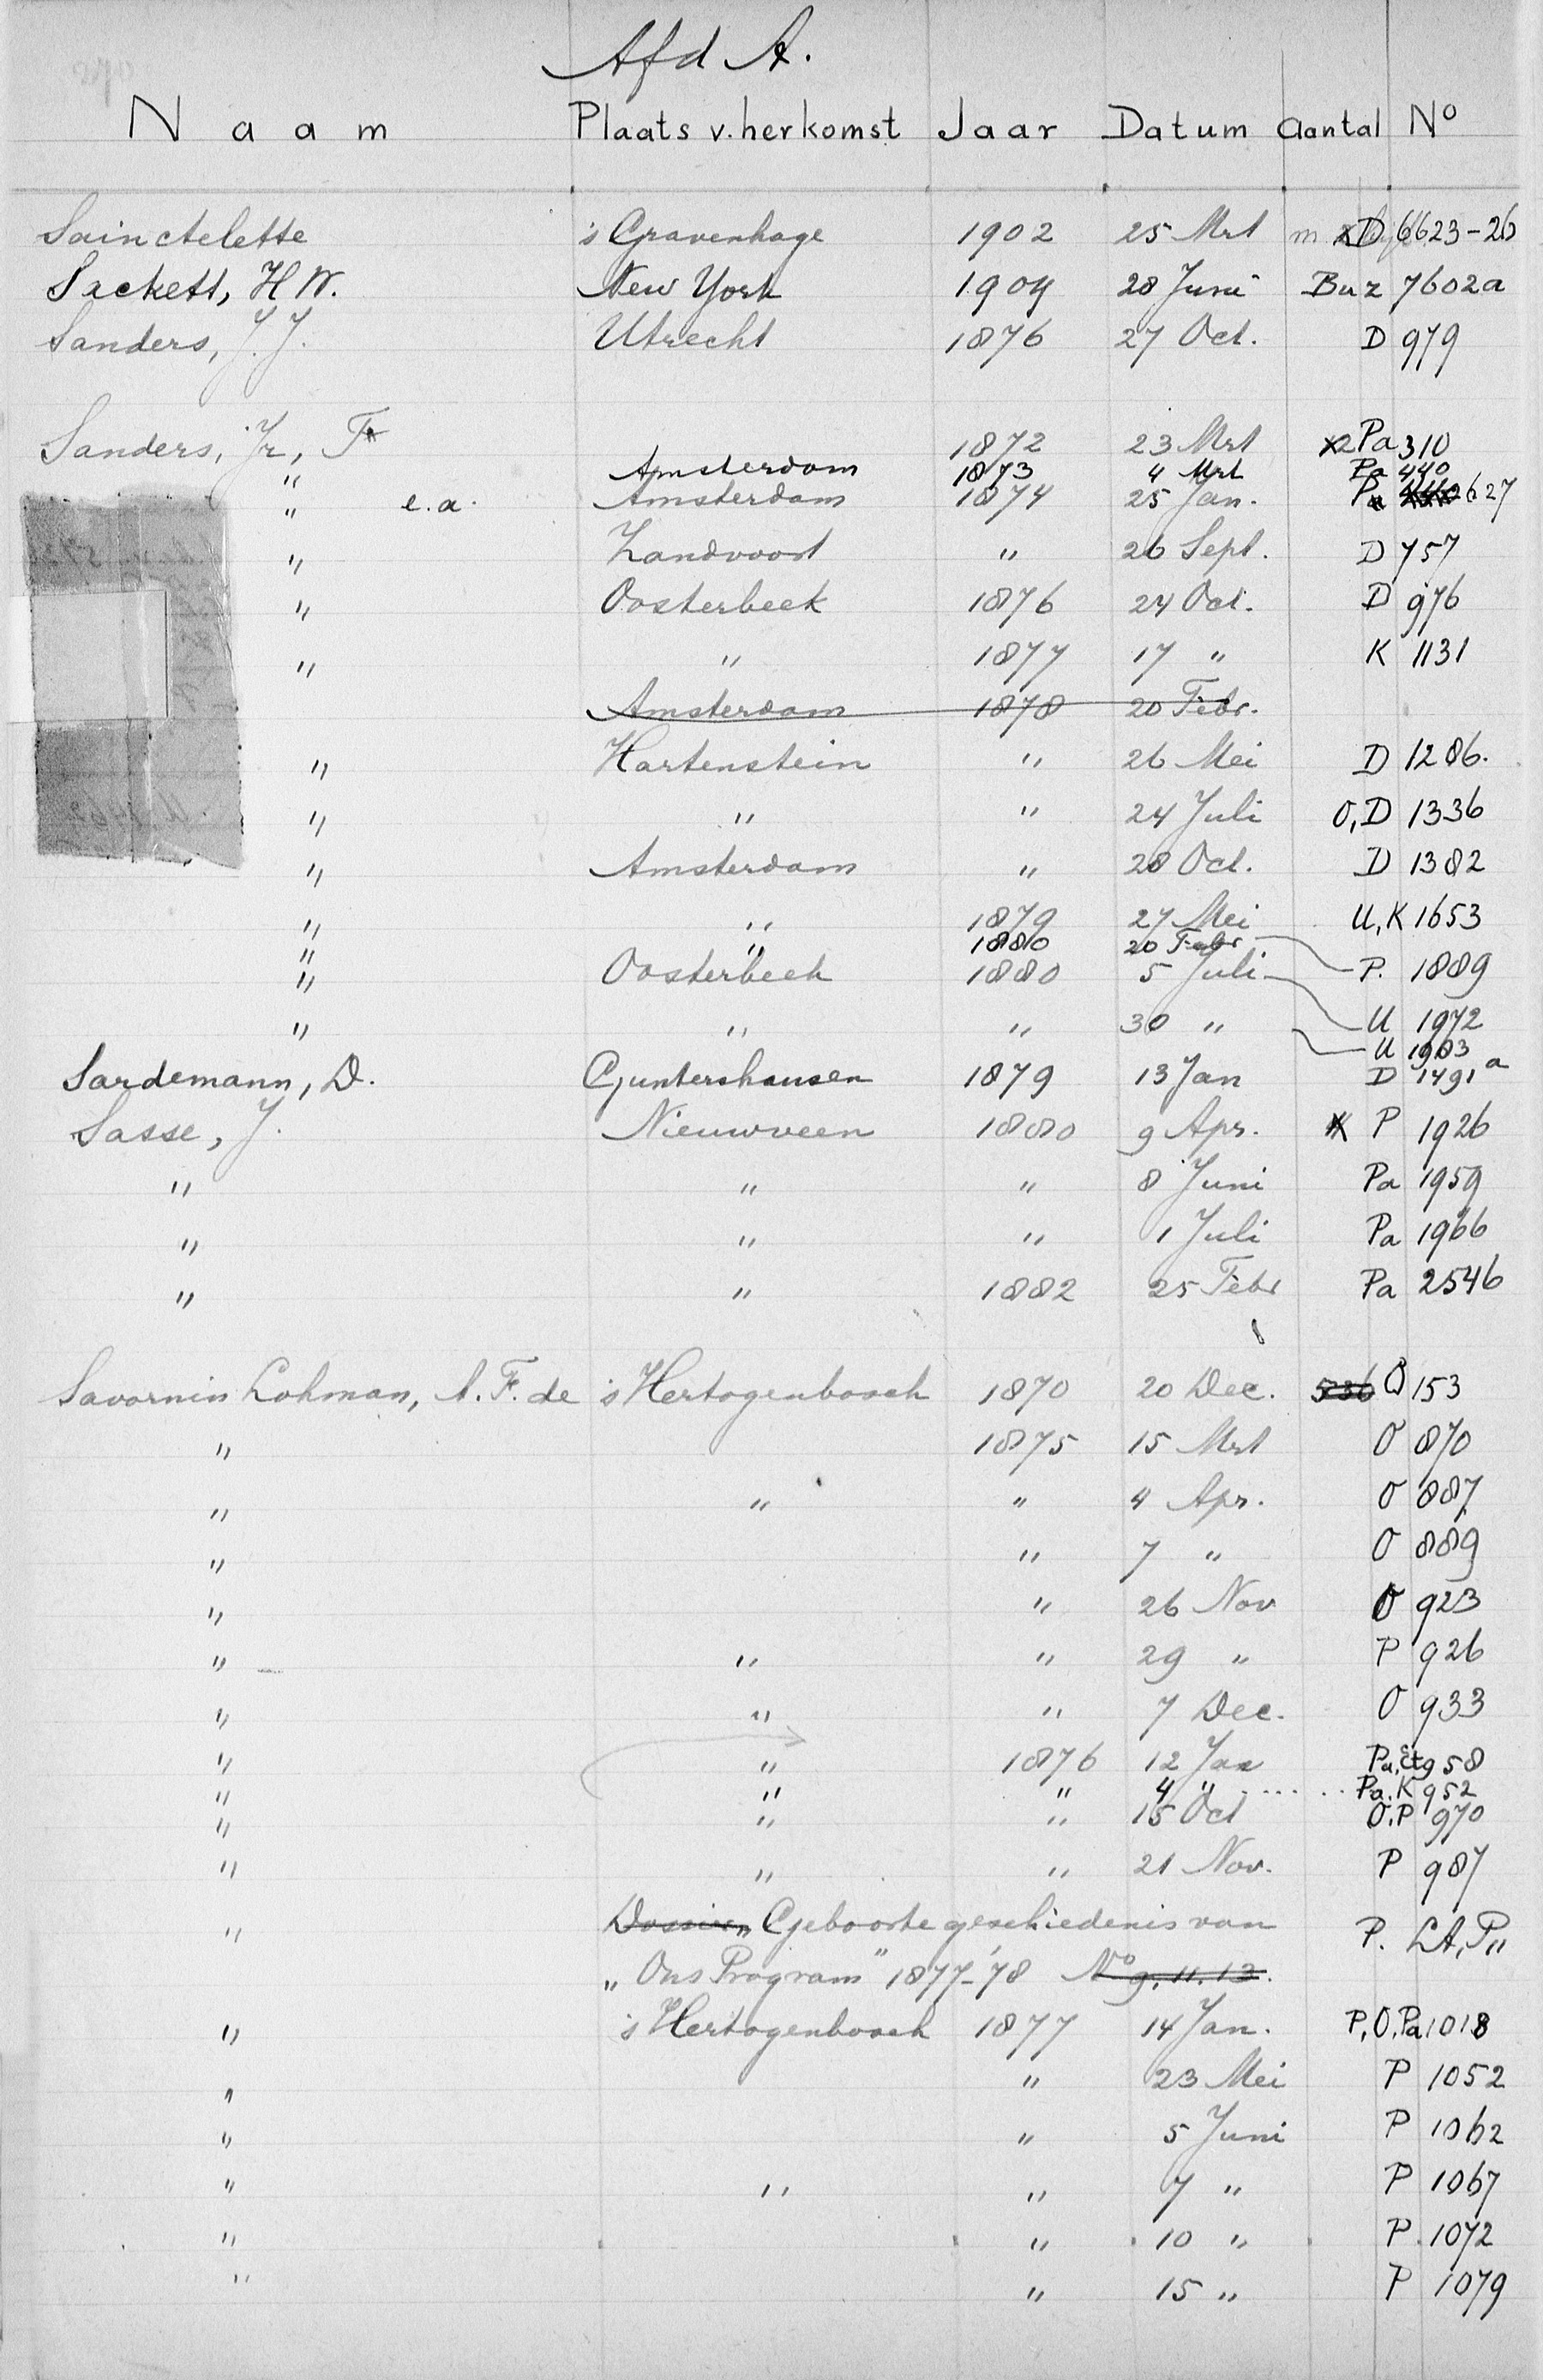 Afd A.
Naam Plaats v. herkomst Jaar Datum Aantal No
Sainctelette 's Gravenhage 1902 25 Mrt D 6623-26
Sackett, H.W. New York 1904 28 Juni Buz 7602a
Sanders, J.J. Utrecht 1876 27 Oct. D 979
Sanders, Jr, F 1872 23 Mrt x2 Pa 310
" Amsterdam 1873 4 Mrt Pa 440
" e.a. Amsterdam 1874 25 Jan. Pa 627
" Zandvoort " 26 Sept. D 757
" Oosterbeek 1876 24 Oct. D 976
" " 1877 17 " K 1131
Amsterdam 1878 20 Febr.
" Hartenstein " 26 Mei D 1286.
" " " 24 Juli O, D 1336
" Amsterdam " 28 Oct. D 1382
" " 1879 27 Mei U, K 1653
" " 1880 20 Febr P. 1889
" Oosterbeek 1880 5 Juli U 1972
" " " 30 " U 1983
Sardemann, D. Guntershausen 1879 13 Jan D 1491a
Sasse, J. Nieuwveen 1880 9 Apr. P 1926
" " " 8 Juni Pa 1959
" " " 1 Juli Pa 1966
" " 1882 25 Febr Pa 2546
Savornin Lohman, A.F. de 's Hertogenbosch 1870 20 Dec. 536 O 153
" 1875 15 Mrt O 870
" " " 4 Apr. O 887
" " 7 " O 889
" " 26 Nov O 923
" " " 29 " P 926
" " " 7 Dec. O 933
" " 1876 12 Jan Pa, Ct 958
" " " 4 " Pa. K 952
" " " 15 Oct O.P 970
" " " 21 Nov. P 987
" Dossier „Geboorte geschiedenis van P. LA, P"
„Ons Program" 1877-'78 No 9, 11, 13.
" 's Hertogenbosch 1877 14 Jan. P, O, Pa 1018
" " 23 Mei P 1052
" " 5 Juni P 1062
" " " 7 " P 1067
" " 10 " P 1072
" " 15 " P 1079